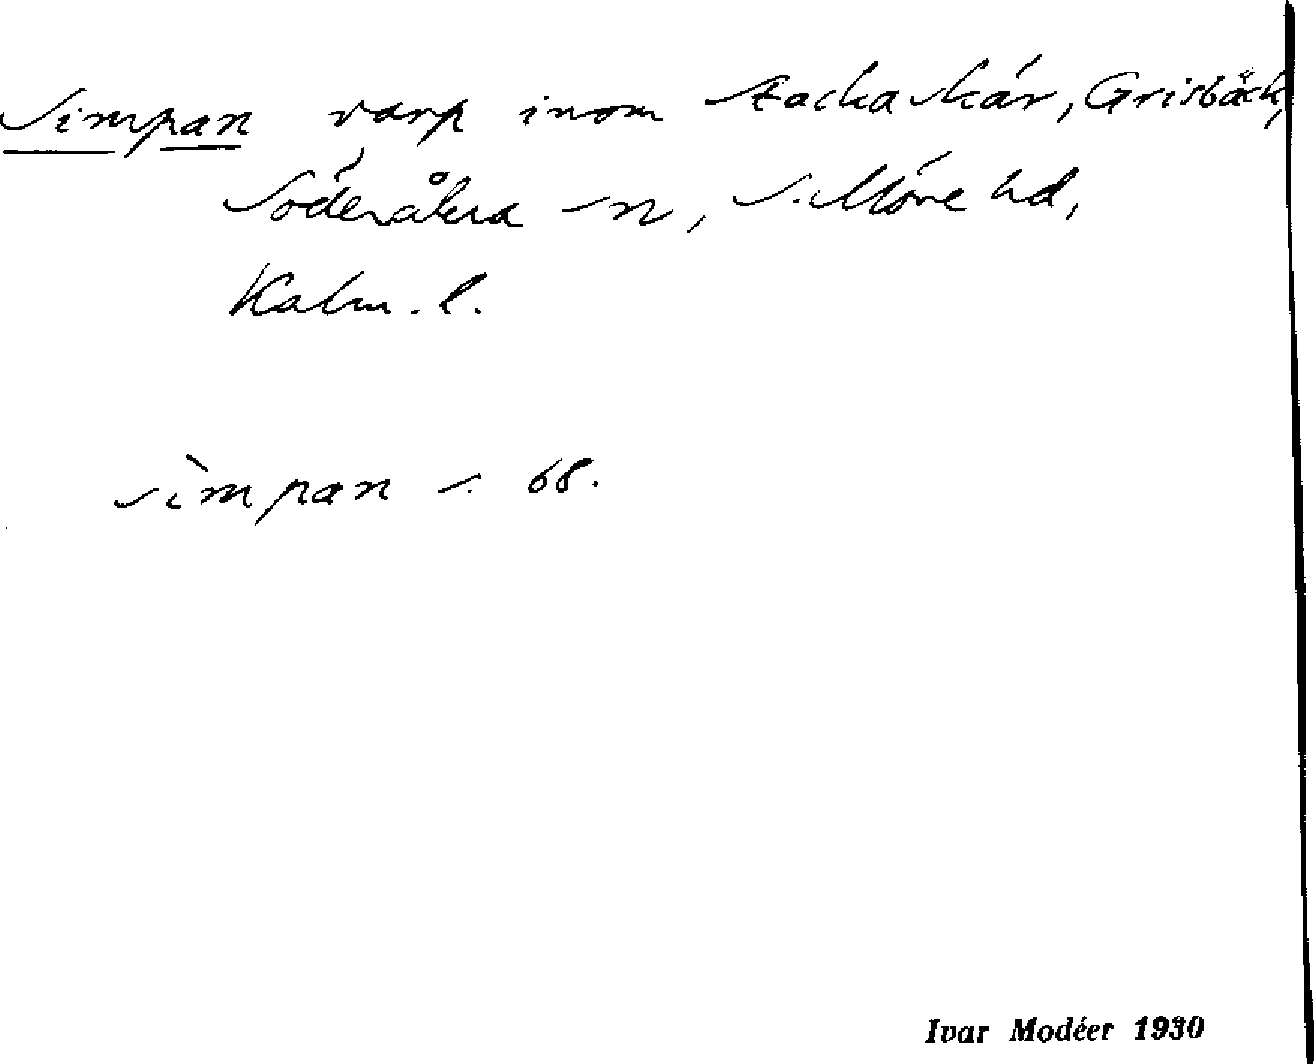 Simpan varp inom Stackaskär, Grisbäck,
Söderåkra sn, S. Möre hd,
Kalm. l.
sìmpan s. 68.
Ivar Modéer 1930